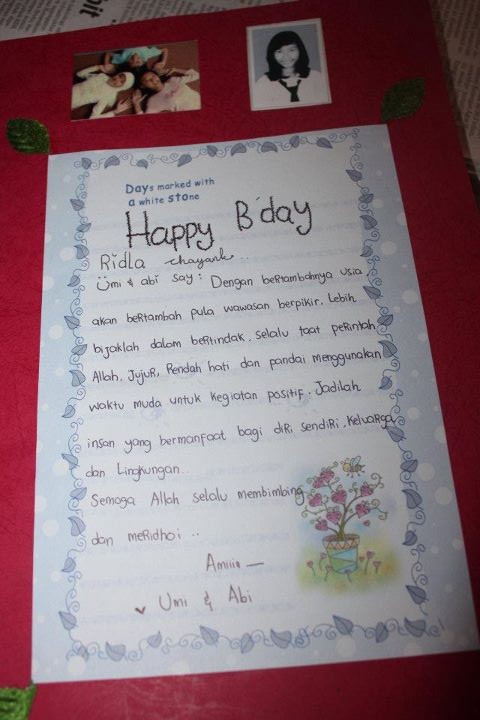 Days marked with
a white stone
Happy B'day
Ridla chayank..
Umi & abi say : Dengan beRtambahnya usia,
akan beRtambah pula wawasan berpikir. Lebih
bijaklah dalam beRtindak. Selalu taat peRintah
Allah. JujuR, Rendah hati dan pandai menggunakan
waktu muda untuk kegiatan positif. Jadilah
insan yang bermanfaat bagi diRi sendiRi, KeluaRga
dan Lingkungan..
Semoga Allah selalu membimbing
dan meRidhoi ..
Amiiin —
Umi & Abi